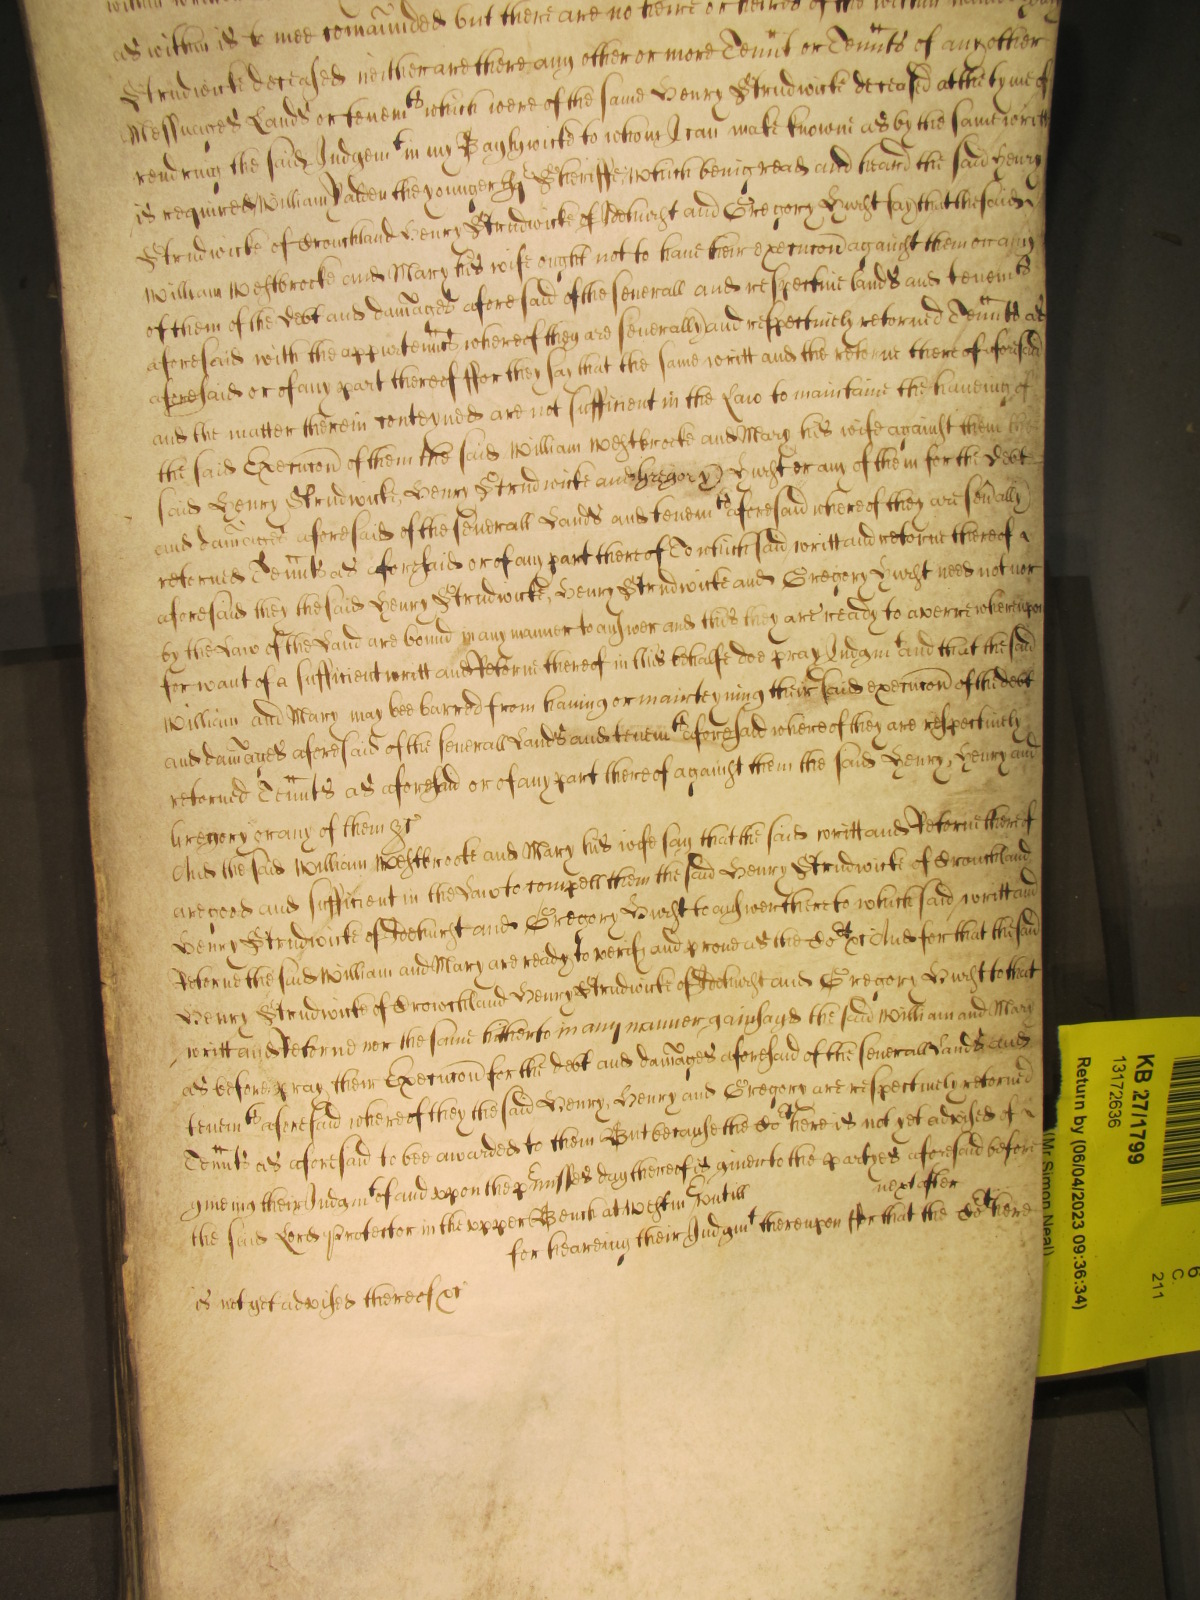 as within is to mee comaunded but there are no heire or heires of the within named Henry
Strudwicke deceased neither are there any other or more Tennt or Tennts of any other
Messuages Lands or tenemts which were of the same Henry Strudwicke deceased at the tyme of
rendring the said Judgemt in my Baylywicke to whom I can make knowne as by the same writt
is required William Yalden the younger Esq Sheriffe, Which being read and heard the said Henry
Strudwicke of Crouchland Henry Strudwicke of Idehurst and Gregory Hurst say that the said
William Westbrooke and Mary his wife ought not to have their execucon against them or any
of them of the debt and damages aforesaid of the severall and respective lands and tenemts
aforesaid with the appurtennts whereof they are severally and respectively retorned Tennts as
aforesaid or of any part thereof ffor they say that the same writt and the retorne thereof aforesaid
and the matter therein conteyned are not sufficient in the Law to maintaine the haveing of
the said Execucon of them the said William Westbrooke and Mary his wife against them the
said Henry Strudwicke, Henry Strudwicke and Gregory Hurst or any of them for the debt
and damages aforesaid of the severall Lands and tenemts aforesaid whereof they are sevally
retorned Tennts as aforesaid or of any part thereof To which said writt and retorne thereof
aforesaid they the said Henry Strudwicke, Henry Strudwicke and Gregory Hurst need not nor
by the Law of the Land are bound in any manner to answer and this they are ready to averre whereupon
for want of a sufficient writt and Retorne thereof in this behalfe doe pray Judgmt and that the said
William and Mary may bee barred from having or mainteyning their said execucon of the debt
and damages aforesaid of the severall Lands and tenemts aforesaid whereof they are respectively
retorned Tennts as aforesaid or of any part thereof against them the said Henry, Henry and
Gregory or any of them &c
And the said William Westbrooke and Mary his wife say that the said writt and Retorne thereof
are good and sufficient in the Law to compell them the said Henry Strudwicke of Crouchland
Henry Strudwicke of Idehurst and Gregory Hurst to answer thereto which said writt and
Retorne the said William and Mary are ready to verify and prove as the Cort &c And for that the said
Henry Strudwicke of Crowchland Henry Strudwicke of Idehurst and Gregory Hurst to that
writt and Retorne nor the same hitherto in any manner gainsayd the said William and Mary
as before pray their Execucon for the debt and damages aforesaid of the severall Lands and
tenemts aforesaid whereof they the said Henry, Henry and Gregory are respectively retorned
Tennts as aforesaid to bee awarded to them But because the Cort here is not yet advised of
giveing their Judgmt of and upon the pmisses day thereof is given to the partyes aforesaid before
the said Lord Protector in the upper Bench at Westm untill next after
for heareing their Judgmt thereupon ffor that the Cort here
is not yet advised thereof &c
KB 27/1799
13172636
Return by (06/04/2023 09:36:34)
(Mr Simon Neal)
6
C
211